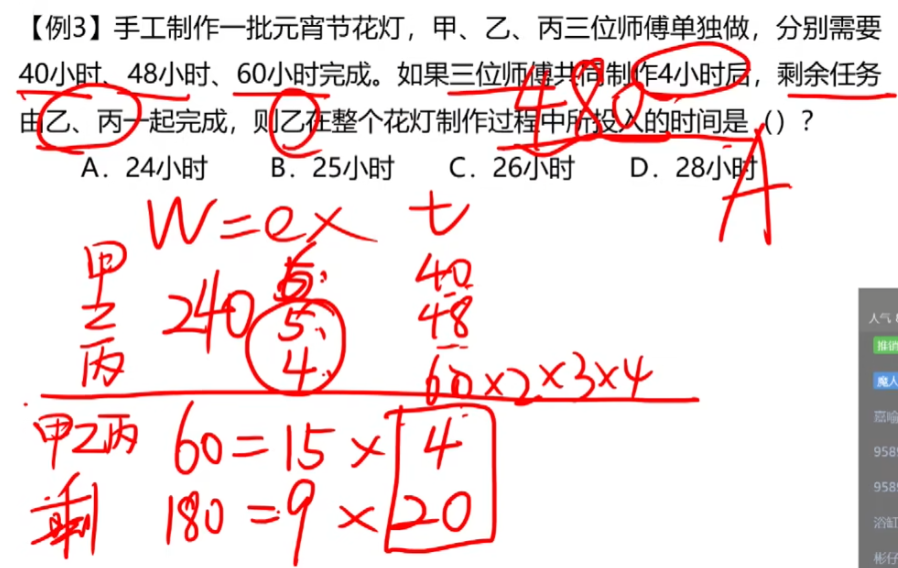 【例3】手工制作一批元宵节花灯，甲、乙、丙三位师傅单独做，分别需要
40小时、48小时、60小时完成。如果三位师傅共同制作4小时后，剩余任务
由乙、丙一起完成，则乙在整个花灯制作过程中所投入的时间是（）？
480
A．24小时 B．25小时 C．26小时 D．28小时
A
W=e× t
甲 6 40
乙 240 5 48
丙 4 60×2×3×4
甲乙丙 60=15×4
剩 180=9×20
人气
推销
魔人
嘉喻
958
958
浴缸
彬仔